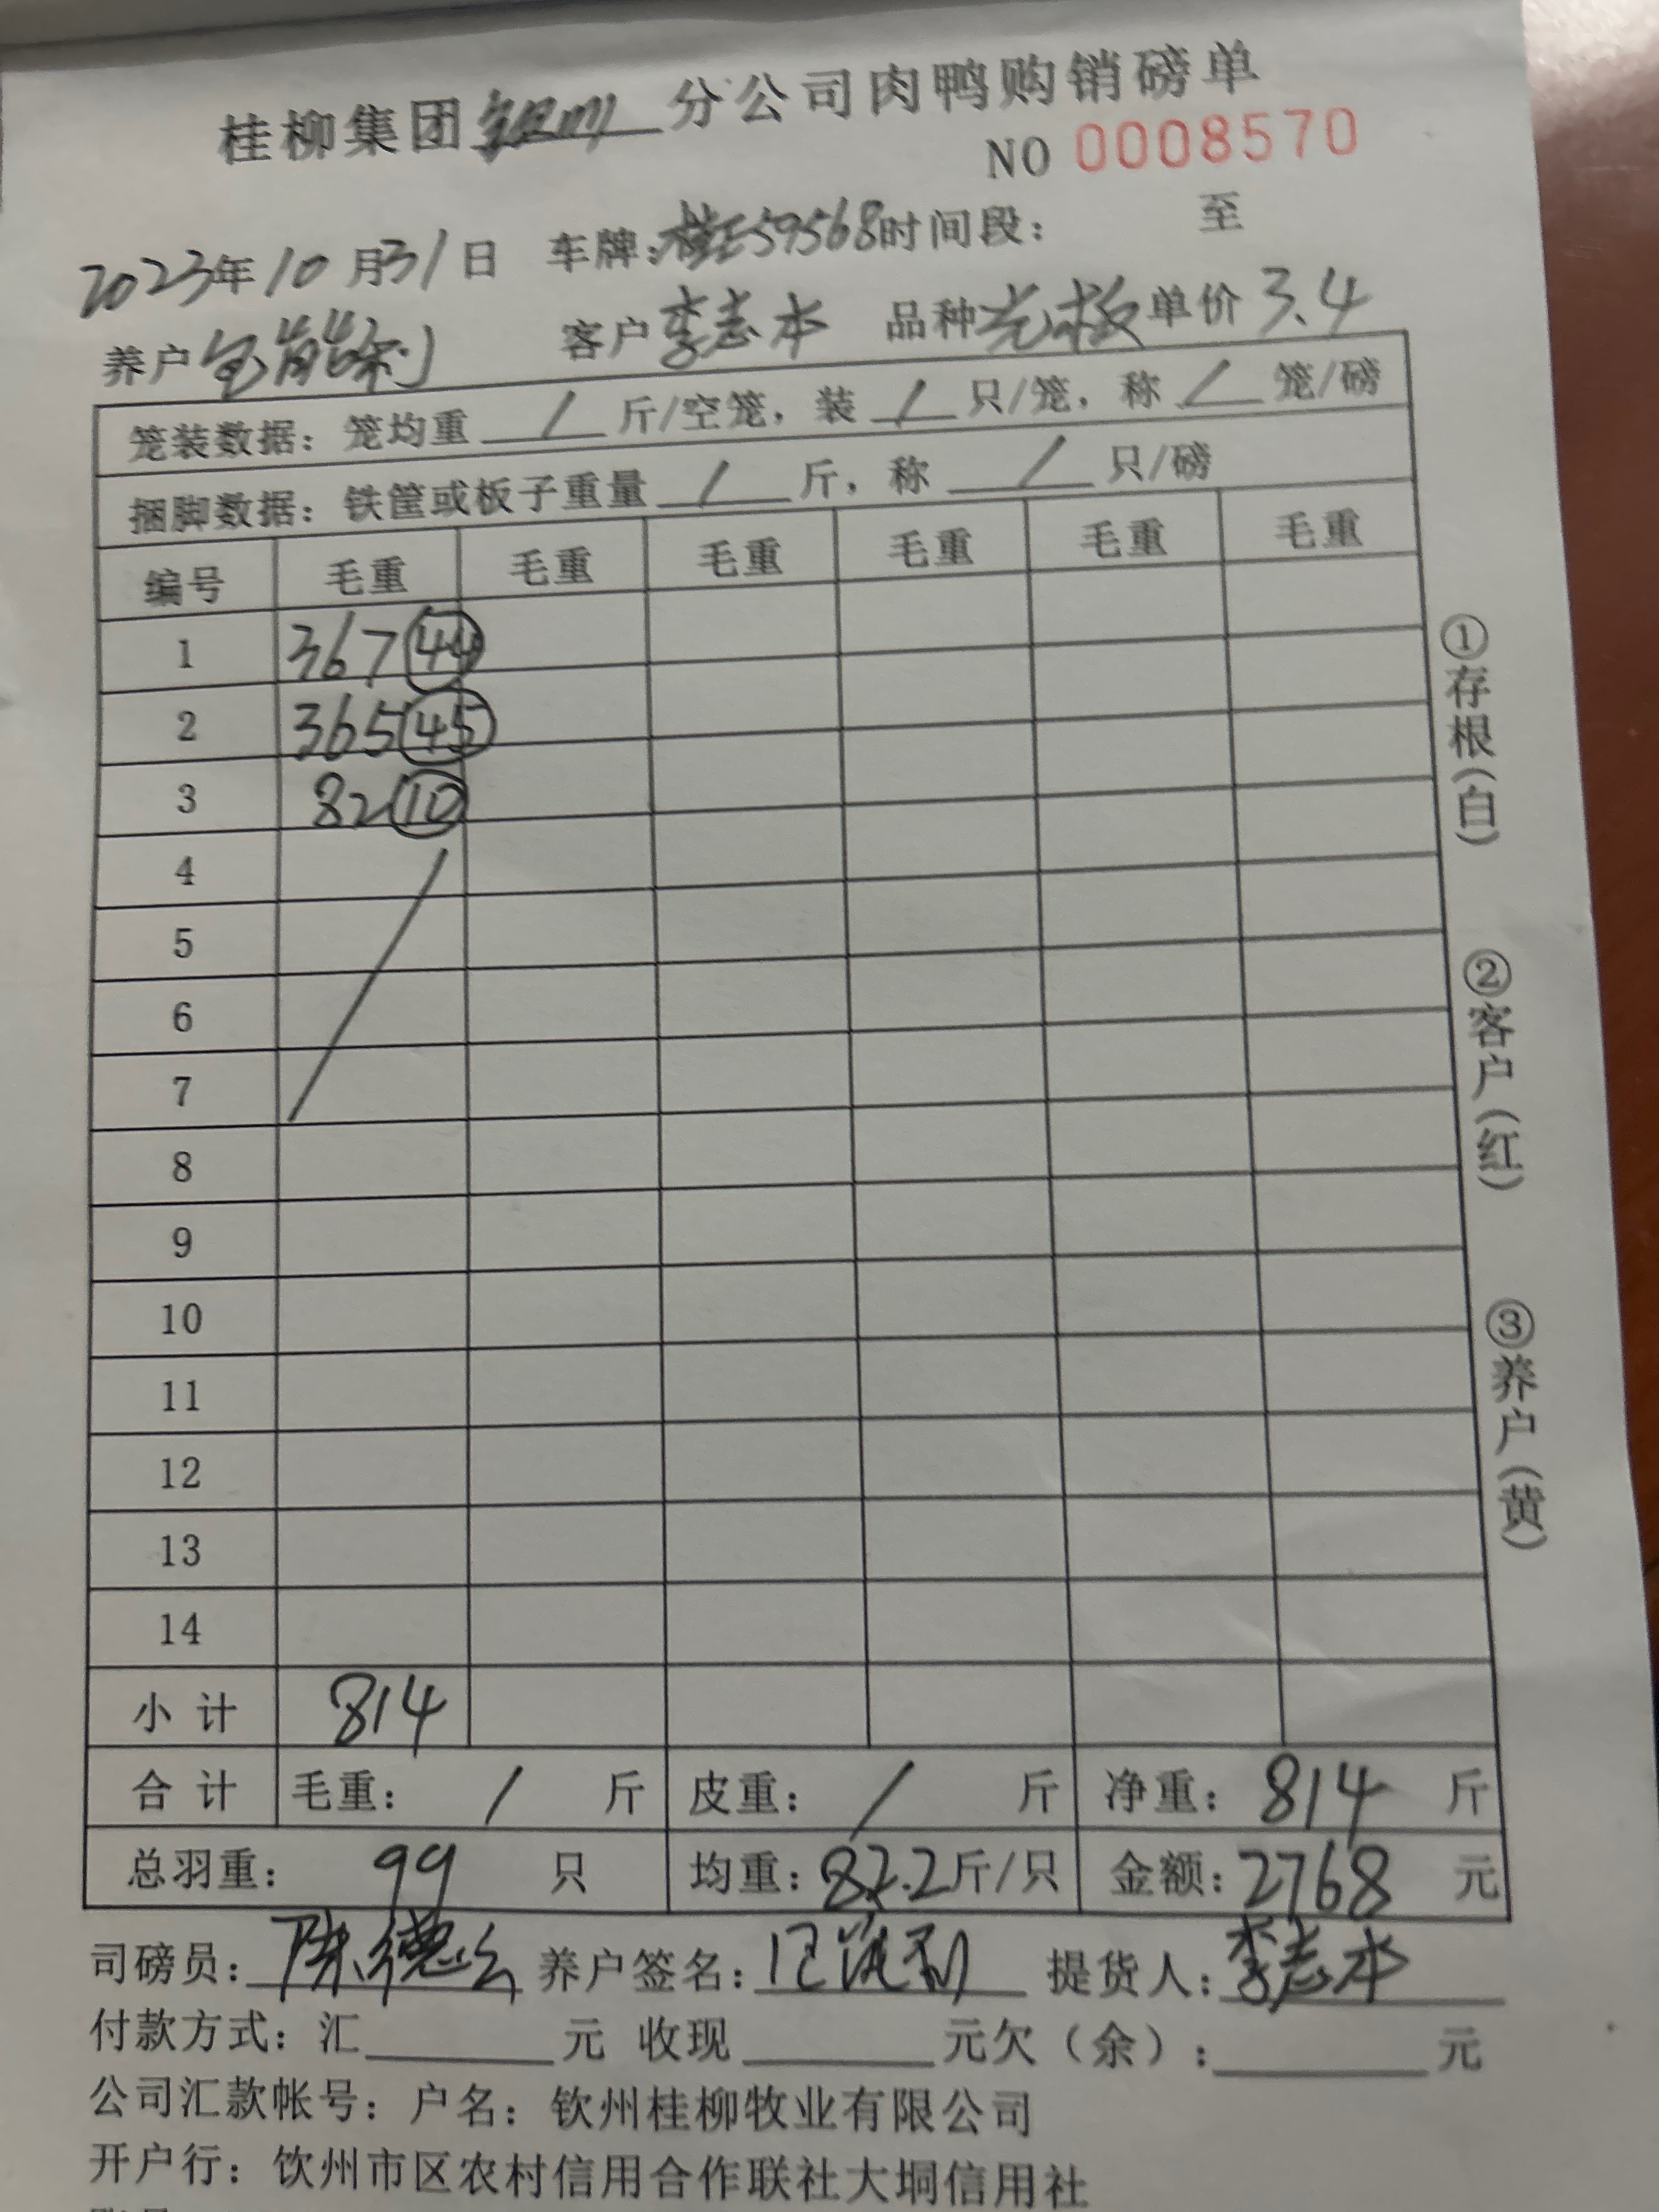 桂柳集团钦州分公司肉鸭购销磅单
NO 0008570
2023年10月31日 车牌:桂E59568时间段: 至
养户 能利 客户 李志本 品种 光板 单价 3.4
笼装数据: 笼均重 / 斤/空笼, 装 / 只/笼, 称 / 笼/磅
捆脚数据: 铁筐或板子重量 / 斤, 称 / 只/磅
编号 毛重 毛重 毛重 毛重 毛重 毛重
1 367 44
2 365 45
3 82 10
4
5
6
7
8
9
10
11
12
13
14
小计 814
合计 毛重: / 斤 皮重: / 斤 净重: 814 斤
总羽重: 99 只 均重: 82.2斤/只 金额: 2768 元
司磅员: 陈德 养户签名: 能利 提货人: 李志本
付款方式: 汇 元 收现 元欠(余): 元
公司汇款帐号: 户名: 钦州桂柳牧业有限公司
开户行: 钦州市区农村信用合作联社大垌信用社
①存根(白)
②客户(红)
③养户(黄)